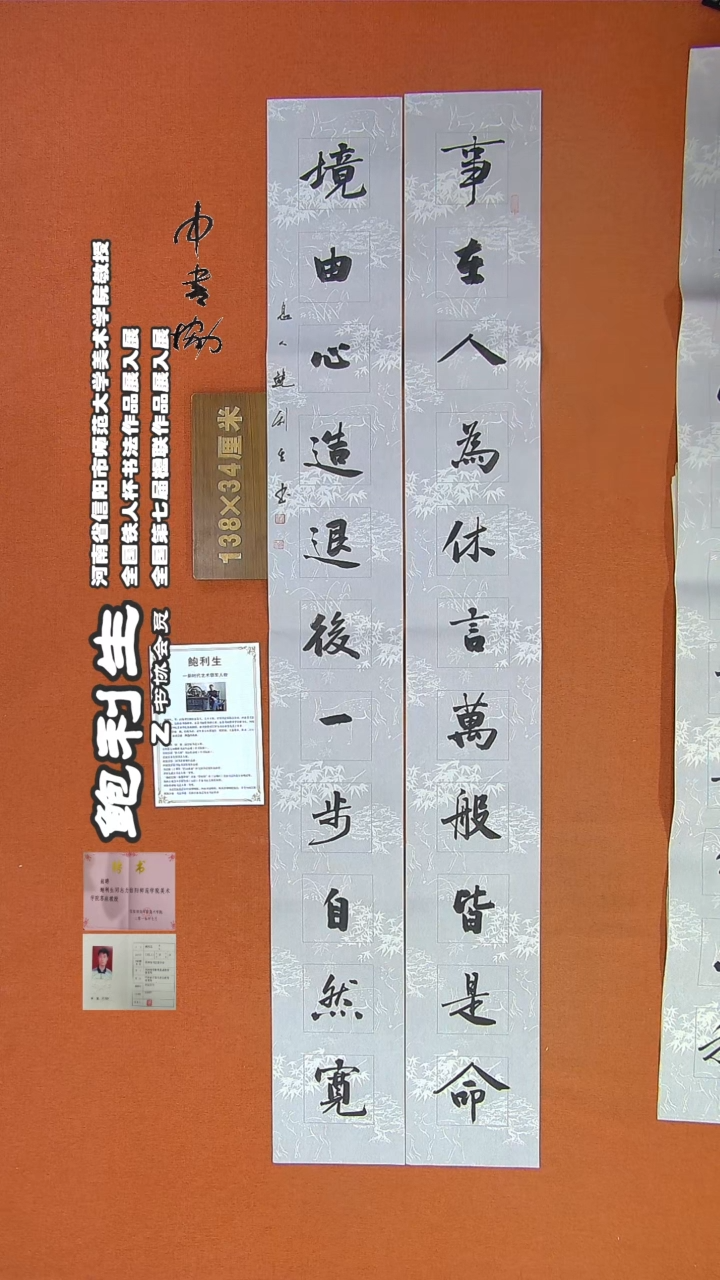 事在人為休言萬般皆是命
境由心造退後一步自然寬
息人鮑利生书
中书协
河南省信阳市师范大学美术学院教授
全国铁人杯书法作品展入展
全国第七届楹联作品展入展
鲍利生
Z书协会员
138×34厘米
鲍利生
聘书